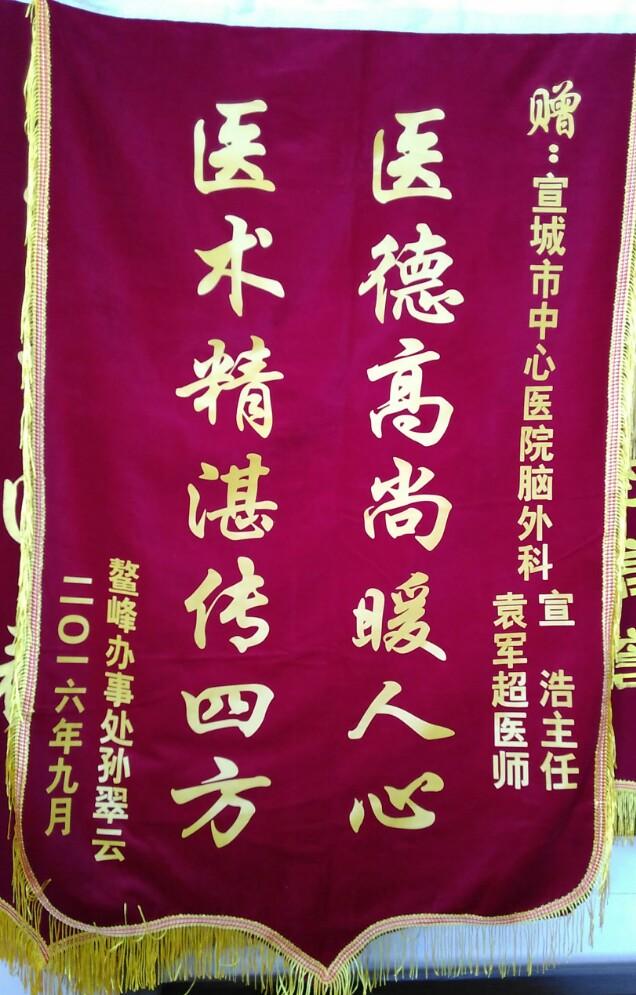 赠：宣城市中心医院脑外科
宣 浩主任
袁军超医师
医德高尚暖人心
医术精湛传四方
鳌峰办事处孙翠云
二〇一六年九月